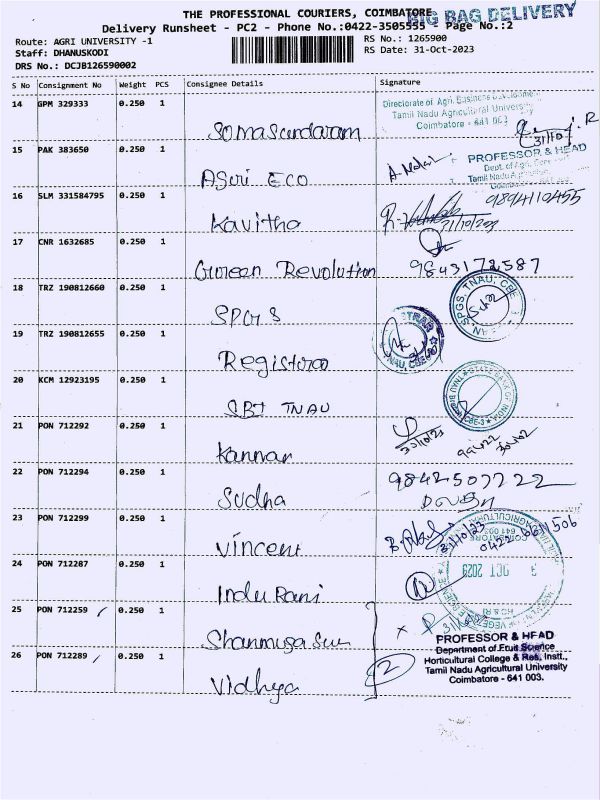 THE PROFESSIONAL COURIERS, COIMBATORE
BIG BAG DELIVERY
Delivery Runsheet - PC2 - Phone No.:0422-3505555 - Page No.:2
Route: AGRI UNIVERSITY -1
RS No.: 1265900
Staff: DHANUSKODI
RS Date: 31-Oct-2023
DRS No.: DCJB126590002
S No Consignment No Weight PCS Consignee Details Signature
14 GPM 329333 0.250 1
Somasundaram
Directorate of Agri. Business Development
Tamil Nadu Agricultural University
Coimbatore - 641 003
31/10
15 PAK 383650 0.250 1
Asuri ECO
PROFESSOR & HEAD
Dept. of Agri.
Tamil Nadu
16 SLM 331584795 0.250 1
Kavitha
9894110455
31/10/2023
17 CNR 1632685 0.250 1
Gureen Revolution
9843172587
18 TRZ 190812660 0.250 1
SPGS
SPGS, TNAU, CBE
19 TRZ 190812655 0.250 1
Registrar
TNAU, CBE-3
20 KCM 12923195 0.250 1
SBI TNAU
STATE BANK OF INDIA
21 PON 712292 0.250 1
Kannan
22 PON 712294 0.250 1
Sudha
9842507722
23 PON 712299 0.250 1
Vincent
31/10/23
24 PON 712287 0.250 1
Indu Rani
OCT 2023
25 PON 712259 0.250 1
26 PON 712289 0.250 1
Vidhya
2
PROFESSOR & HEAD
Department of Fruit Science
Horticultural College & Res. Instt.,
Tamil Nadu Agricultural University
Coimbatore - 641 003.